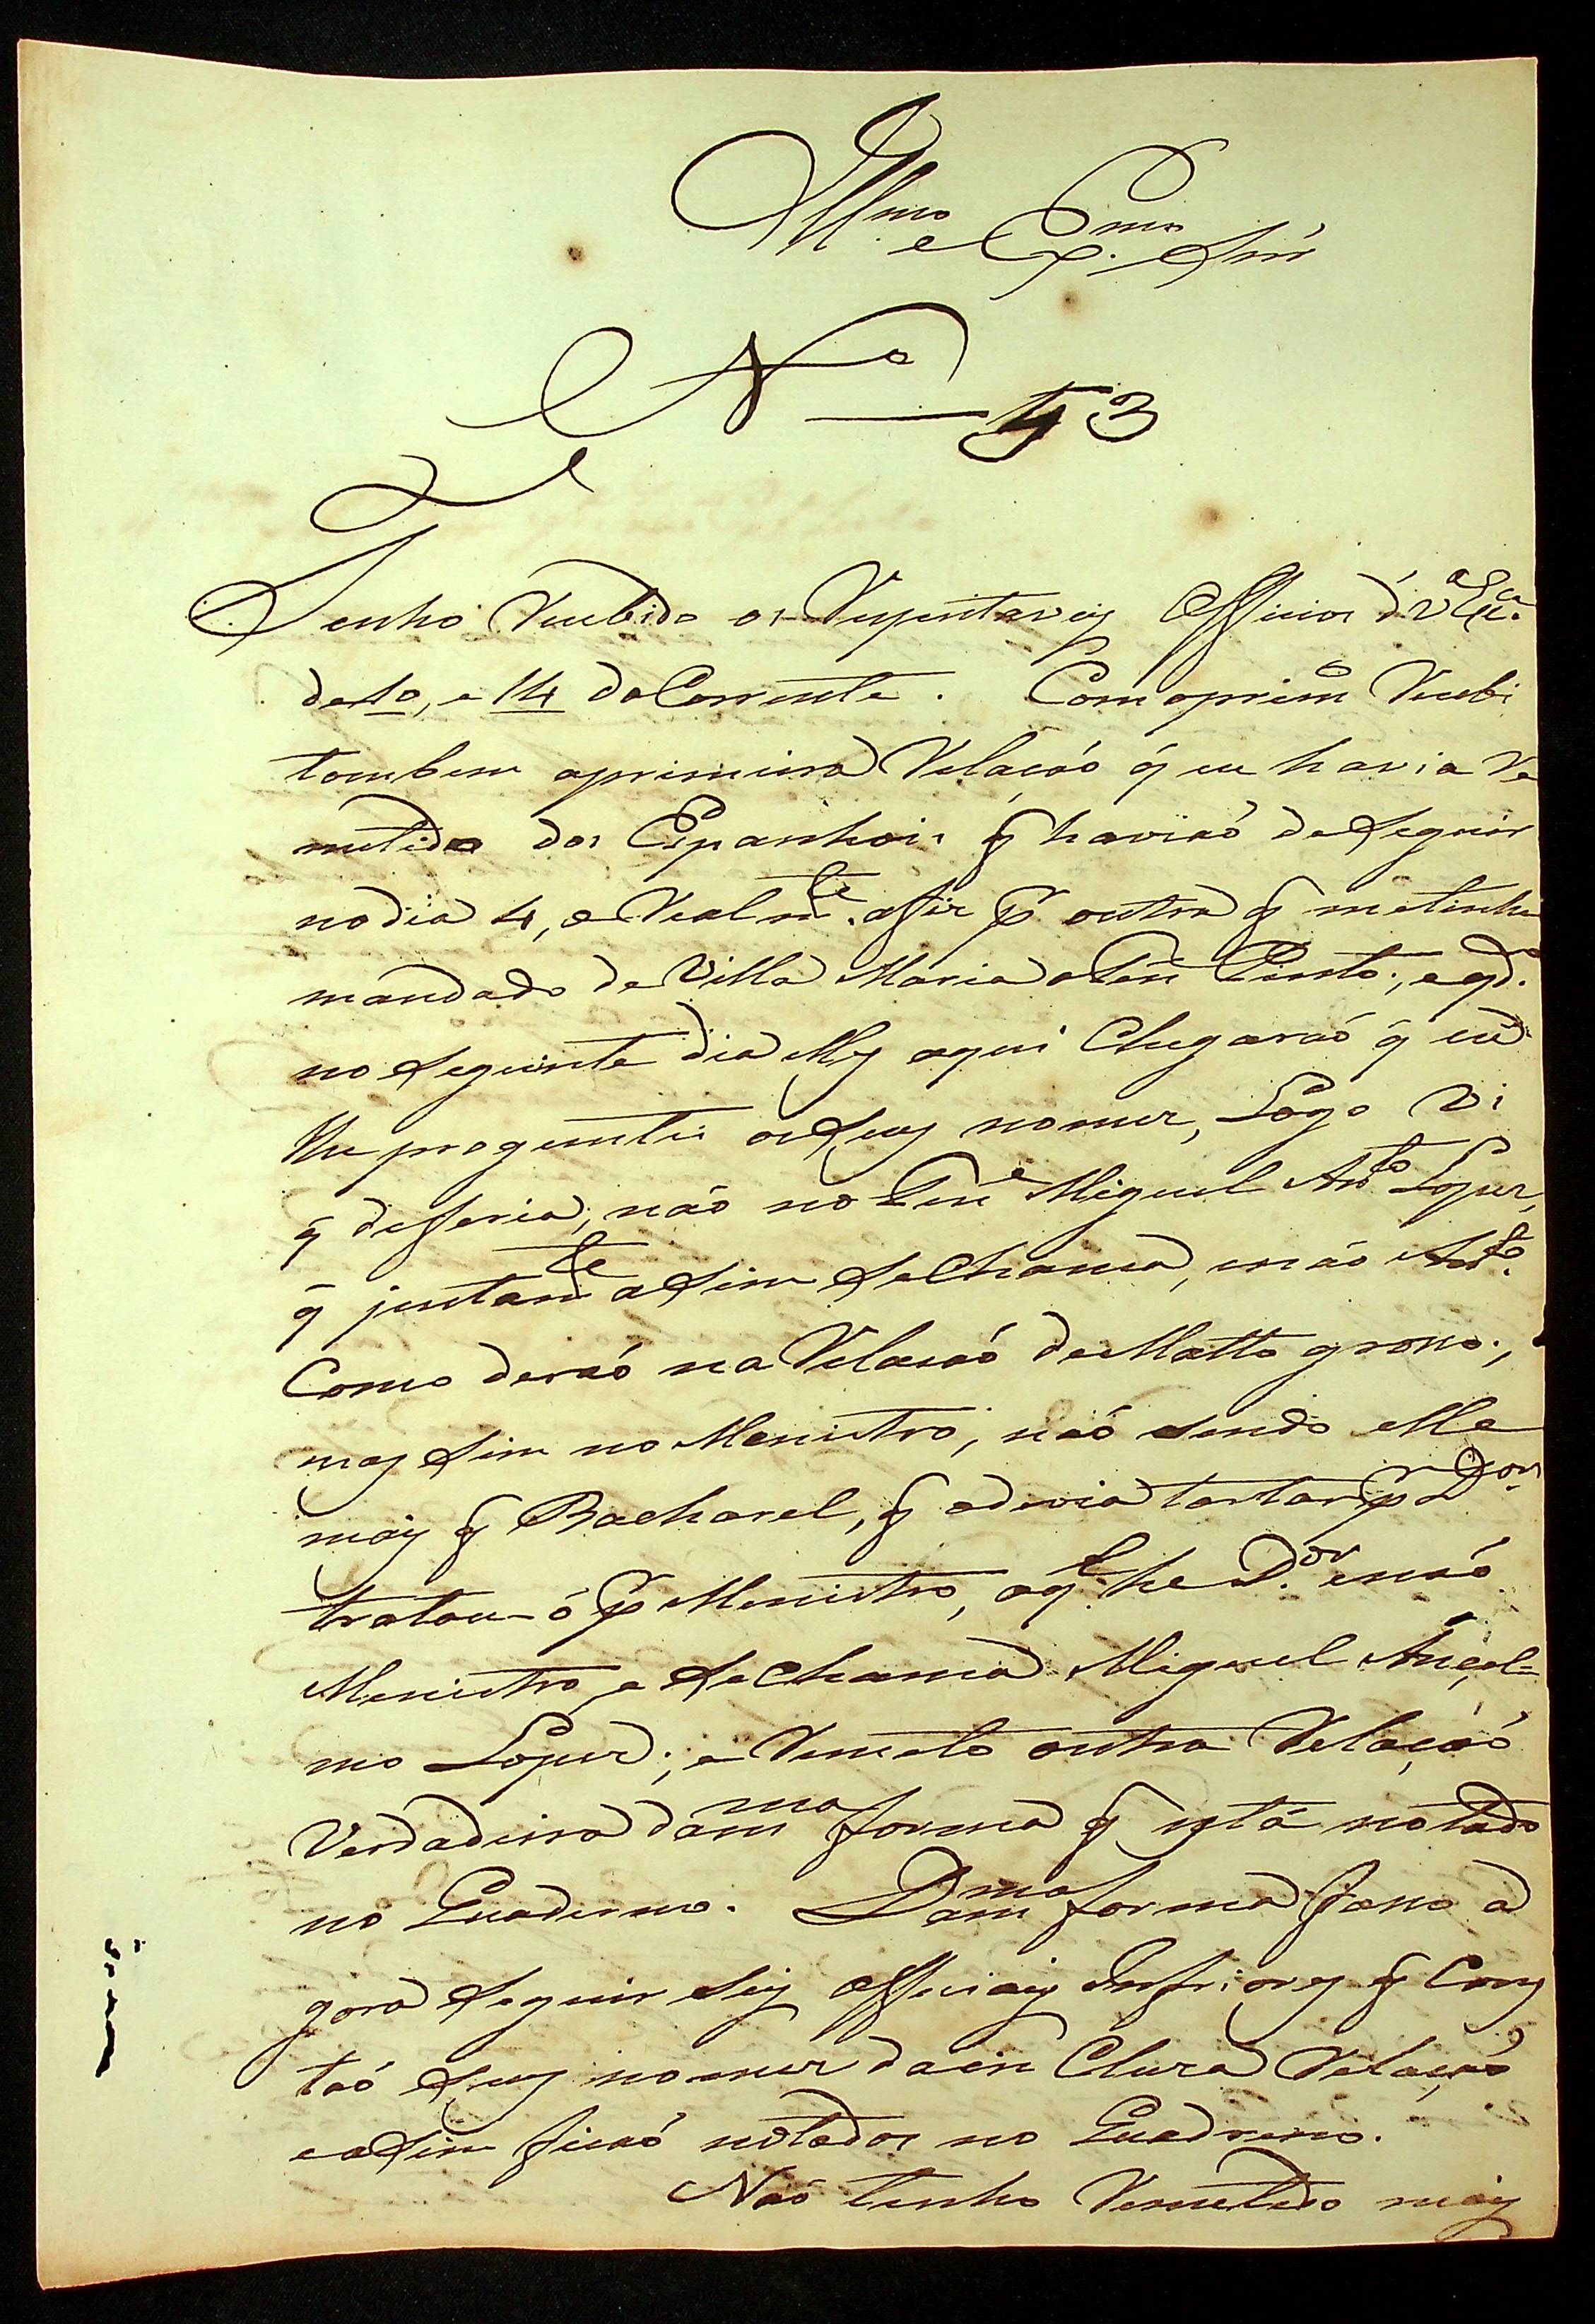 Illmo e Exmo Snr
No 53
Tenho Recebido os Respeitaveis Officios d'V.a Ex.ca
de 10, e 14 do Corrente. Com o prim.o Recebi
tambem aprimeira Relacaó q̃ eu havia Re
metido dos Espanhois q̃ haviaó de Seguir
no dia 4, e Realm.te a fis p.r outra q̃ me tinha
mandado de Villa Maria o Ten.e Pinto; e qd.o
no Seguinte dia elles aqui Chegaraó q̃ eu
lhe proguntei os Seus nomes, Logo Vi
q̃ deferia; naó no Ten.e Miguel Ant.o Lopes,
q̃ justam.te asim se Chama, e não Ant.o
Como deraó na Relacaó de Matto grosso;
mas Sim no Menistro, naó sendo elle
mais q̃ Bacharel, q̃ o devia tartar p.r D.or
tratou-ó p.r Menistro, oq.l he D.or e naó
Menistro, e se Chama Miguel Ançel=
mo Lopes; e Remeto outra Relação
Verdadeira da m.ma forma q̃ está notado
no Quaderno. Da m.ma forma faso a
gora Seguir Seis Officiais Inferiores q̃ Cons
taó Seus nomes da in Cluza Relação
e asim ficaó notados no Quaderno.
Naó tenho Remetido mais